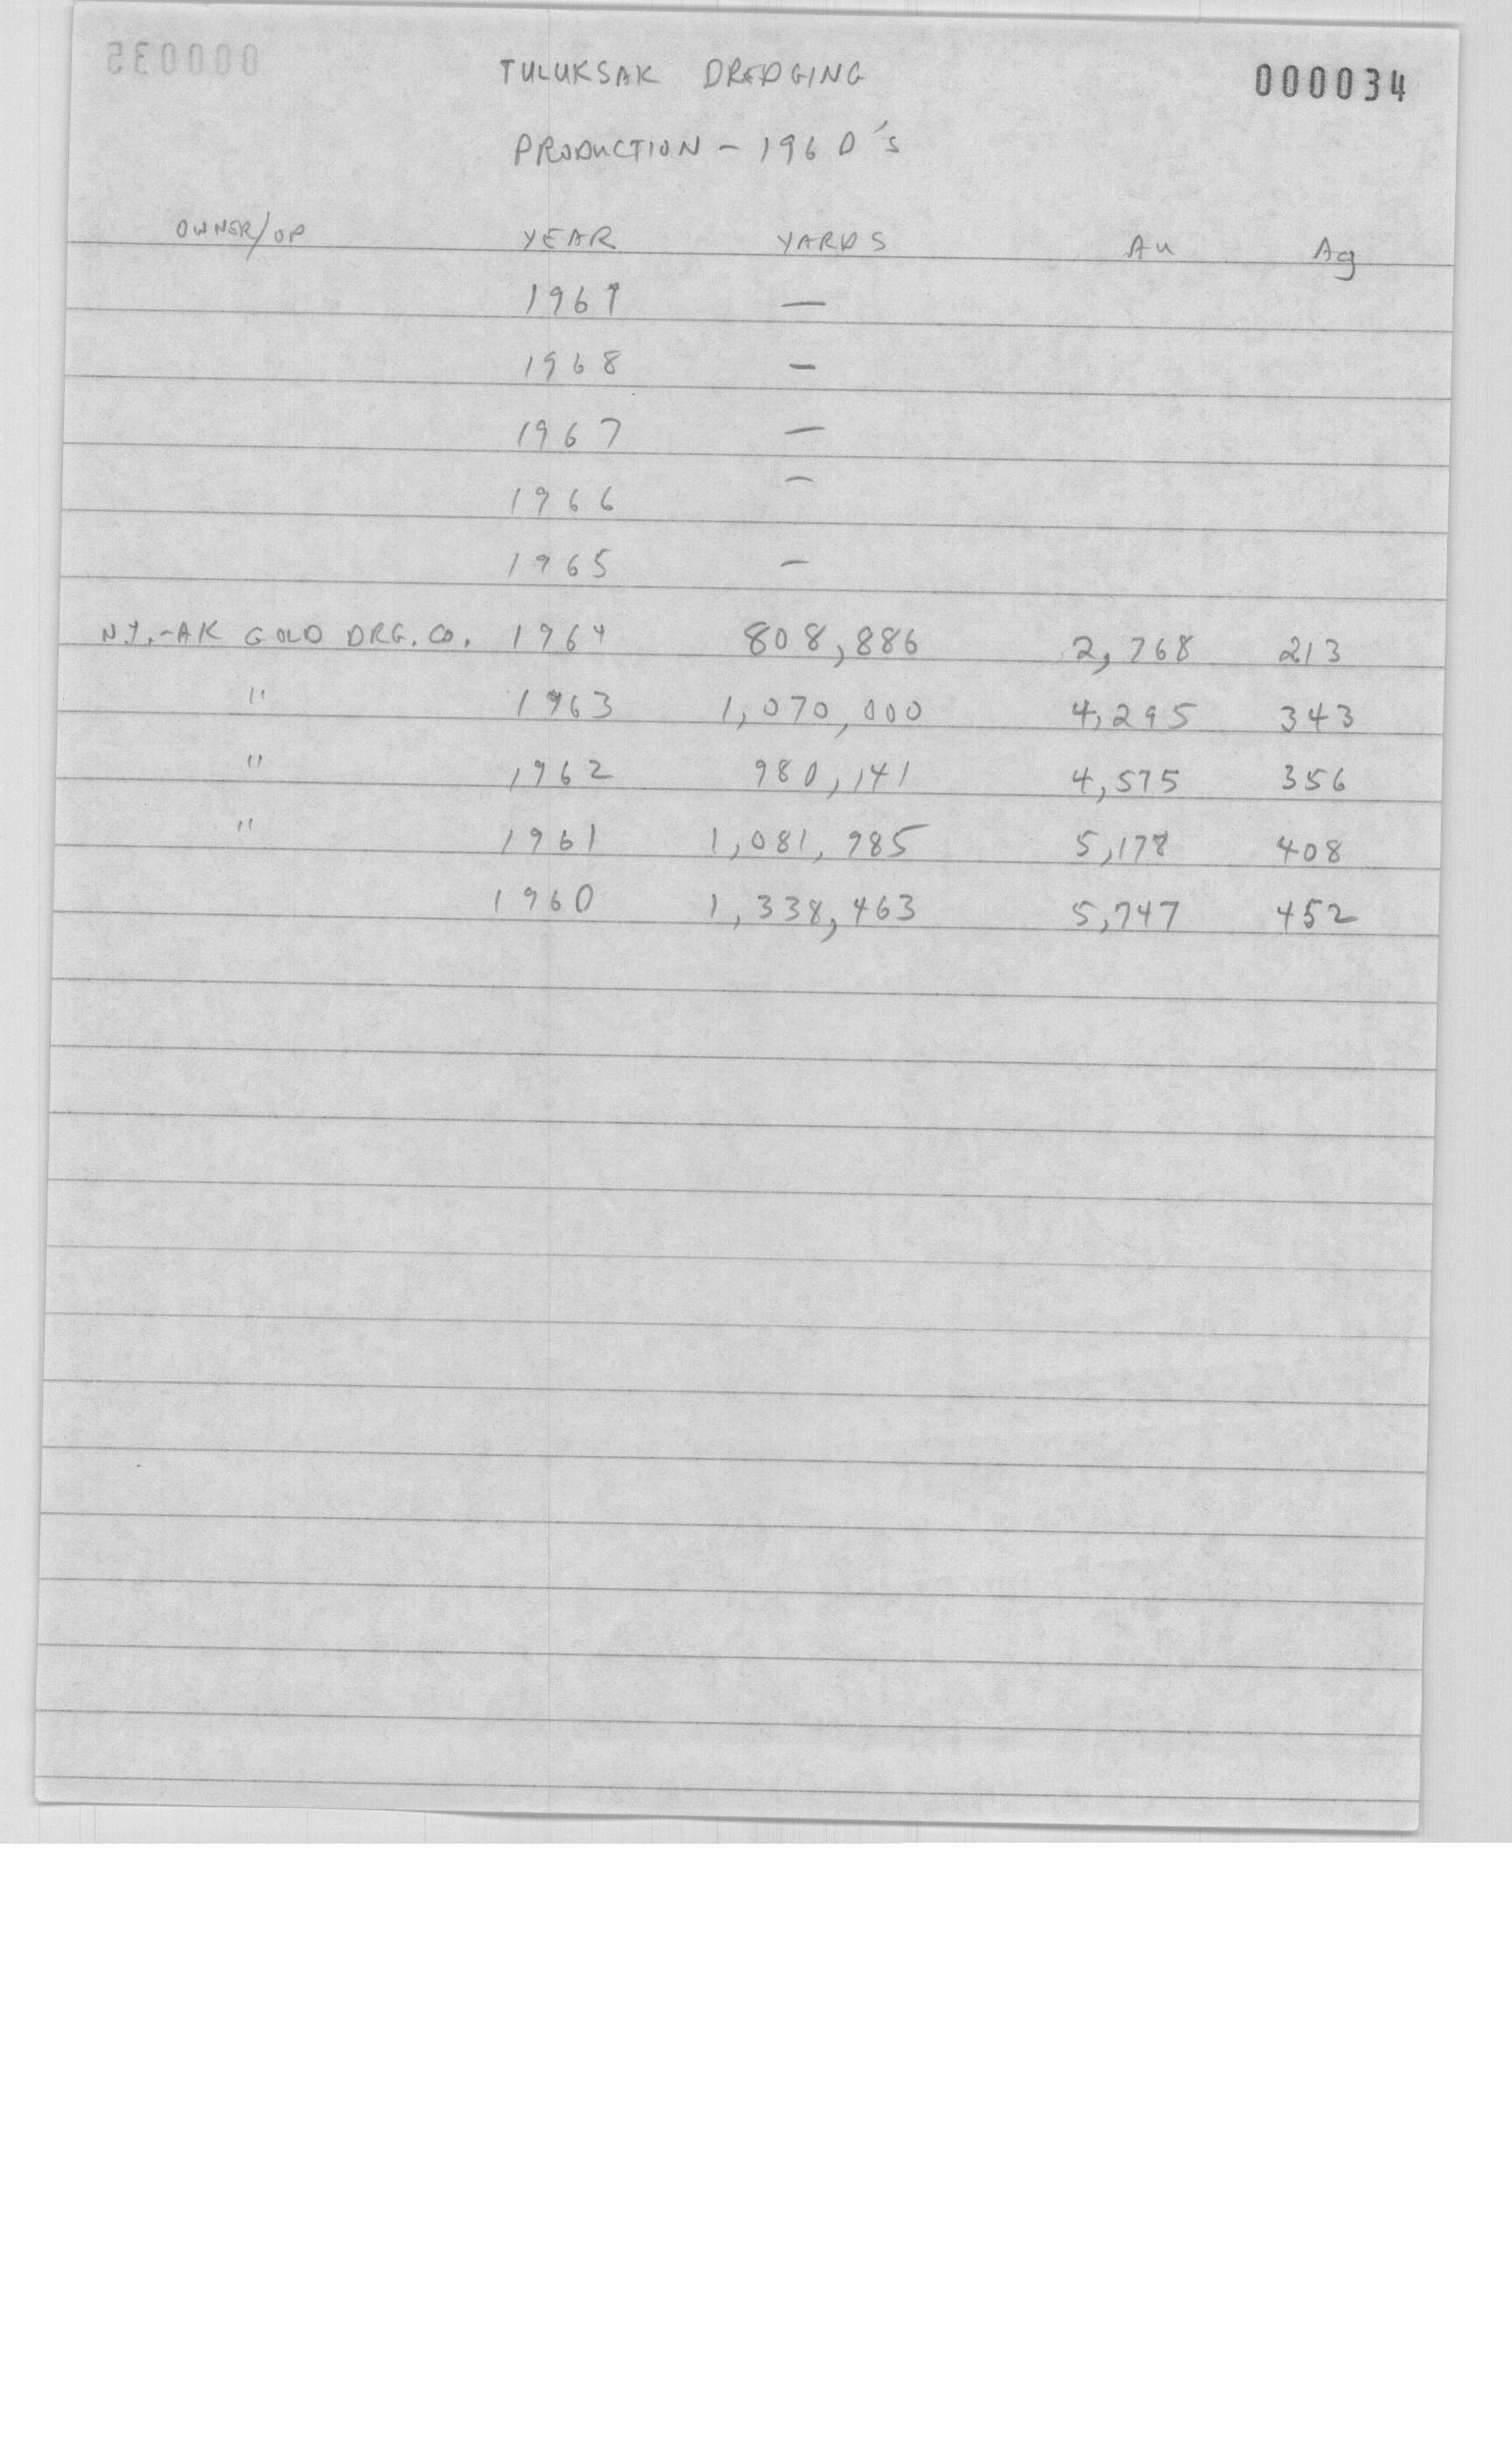 000035
TULUKSAK DREDGING 000034
PRODUCTION - 1960's
OWNER/OP YEAR YARDS Au Ag
1969 —
1968 —
1967 —
1966 —
1965 —
N.Y.-AK GOLD DRG. CO. 1964 808,886 2,768 213
" 1963 1,070,000 4,295 343
" 1962 980,141 4,575 356
" 1961 1,081,985 5,178 408
1960 1,338,463 5,747 452